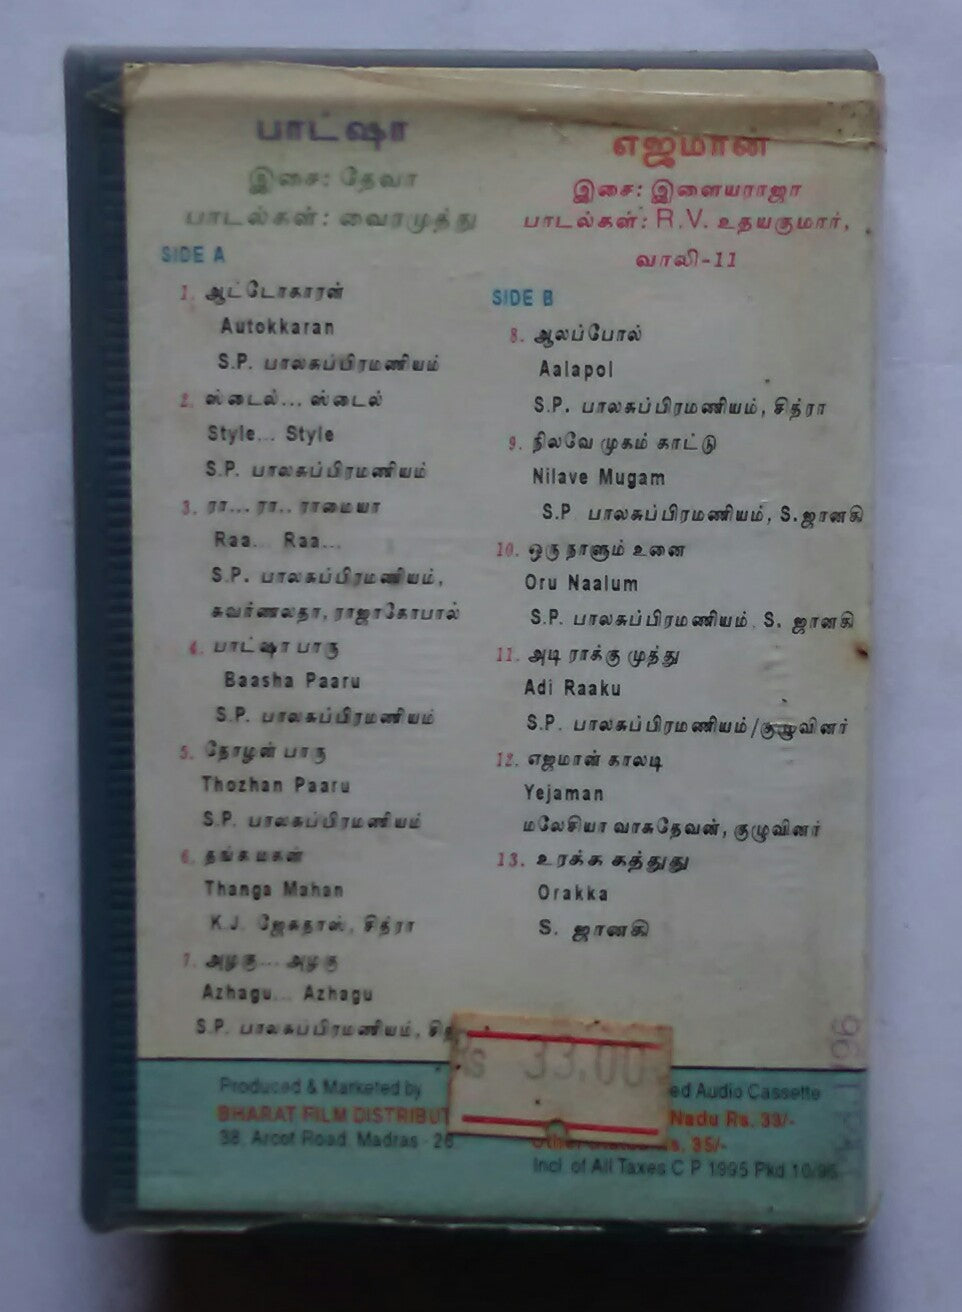 பாட்ஷா
இசை: தேவா
பாடல்கள்: வைரமுத்து
SIDE A
1. ஆட்டோகாரன்
Autokkaran
S.P. பாலசுப்பிரமணியம்
2. ஸ்டைல்... ஸ்டைல்
Style... Style
S.P. பாலசுப்பிரமணியம்
3. ரா... ரா.. ராமையா
Raa... Raa...
S.P. பாலசுப்பிரமணியம்,
சுவர்ணலதா, ராஜாகோபால்
4. பாட்ஷா பாரு
Baasha Paaru
S.P. பாலசுப்பிரமணியம்
5. தோழன் பாரு
Thozhan Paaru
S.P. பாலசுப்பிரமணியம்
6. தங்கமகன்
Thanga Mahan
K.J. ஜேசுதாஸ், சித்ரா
7. அழகு... அழகு
Azhagu... Azhagu
S.P. பாலசுப்பிரமணியம்,
எஜமான்
இசை: இளையராஜா
பாடல்கள்: R.V. உதயகுமார்,
வாலி-11
SIDE B
8. ஆலப்போல்
Aalapol
S.P. பாலசுப்பிரமணியம், சித்ரா
9. நிலவே முகம் காட்டு
Nilave Mugam
S.P பாலசுப்பிரமணியம், S.ஜானகி
10. ஒரு நாளும் உனை
Oru Naalum
S.P. பாலசுப்பிரமணியம், S. ஜானகி
11. அடி ராக்கு முத்து
Adi Raaku
S.P. பாலசுப்பிரமணியம்/குழுவினர்
12. எஜமான் காலடி
Yejaman
மலேசியா வாசுதேவன், குழுவினர்
13. உரக்க கத்துது
Orakka
S. ஜானகி
Rs 33.00
Produced & Marketed by
BHARAT FILM DISTRIBUT
38, Arcot Road, Madras - 26.
ed Audio Cassette
Nadu Rs. 33/-
s. 35/-
Incl. of All Taxes C P 1995 Pkd 10/95